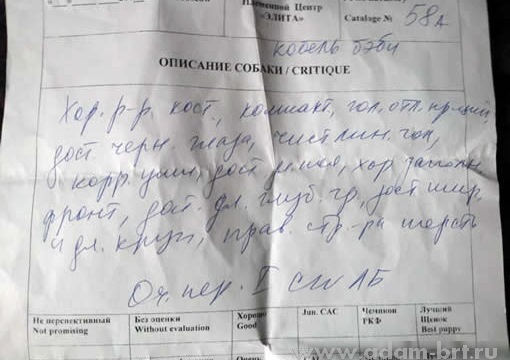 Племенной Центр
«ЭЛИТА»
Catalage № 58А
кобель бэби
ОПИСАНИЕ СОБАКИ / CRITIQUE
Хор. р-р. кост, компакт, гол. отл.
дост. черн. глаза, чист лин. гол,
корр. уши, дост. шея, хор. заполн
фронт, дост. дл. глуб. гр, дост шир,
и дл. круп, прав. стр-ра шерсть
Оч. пер. I CW ЛБ
Не перспективный
Not promising
Без оценки
Without evaluation
Хорошо
Good
Jun. CAC
Чемпион
РКФ
Лучший
Щенок
Best puppy
www.adam-brt.ru